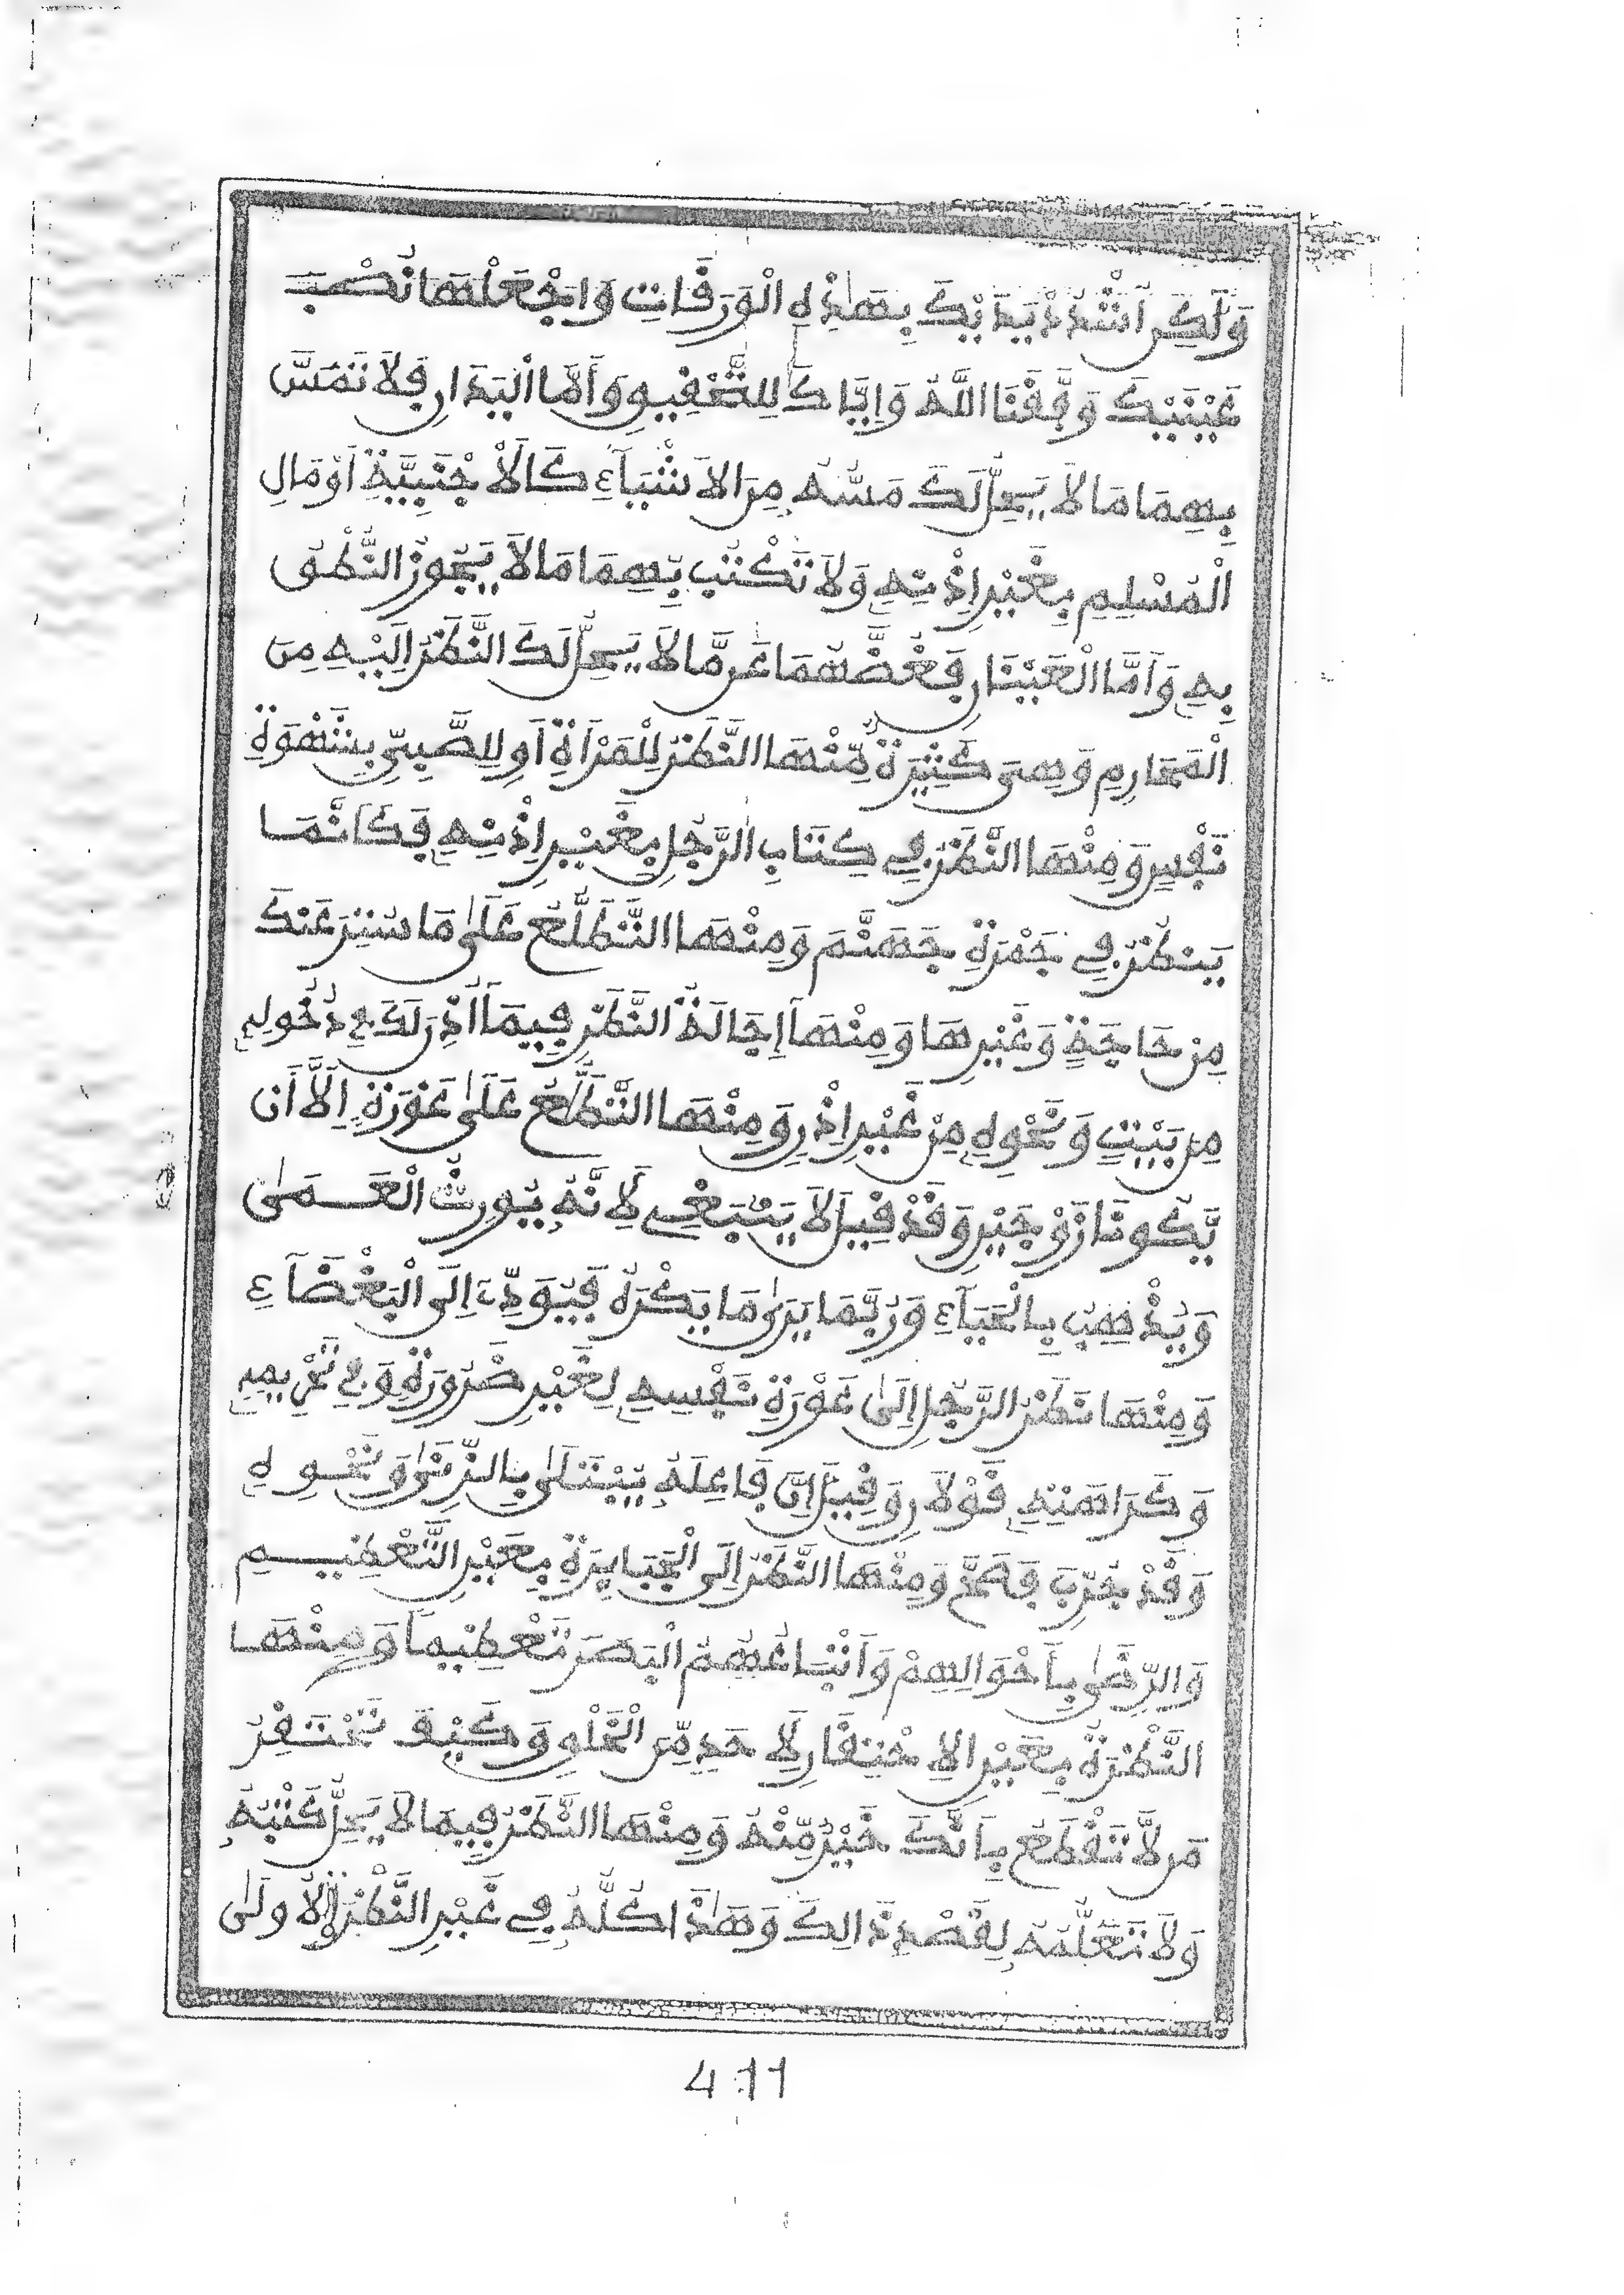 وَلَكِنِ اشْدُدْ يَدَيْكَ بِهَذِهِ الْوَرَقَاتِ وَاجْعَلْهَا نُصْبَ
عَيْنَيْكَ وَفَّقَنَا اللَّهُ وَإِيَّاكَ لِلتَّحْقِيقِ وَأَمَّا الْيَدَانِ فَلَا تَمَسَّ
بِهِمَا مَا لَا يَحِلُّ لَكَ مَسُّهُ مِنَ الْأَشْيَاءِ كَالْأَجْنَبِيَّةِ أَوْ مَالِ
الْمُسْلِمِ بِغَيْرِ إِذْنِهِ وَلَا تَكْتُبْ بِهِمَا مَا لَا يَجُوزُ النُّطْقُ
بِهِ وَأَمَّا الْعَيْنَانِ فَغُضَّهُمَا عَن مَّا لَا يَحِلُّ لَكَ النَّظَرُ إِلَيْهِ مِنَ
الْمَحَارِمِ وَهِيَ كَثِيرَةٌ مِّنْهَا النَّظَرُ لِلْمَرْأَةِ أَوْ لِلصَّبِيِّ بِشَهْوَةِ
نَفْسٍ وَمِنْهَا النَّظَرُ فِي كِتَابِ الرَّجُلِ بِغَيْرِ إِذْنِهِ فَكَأَنَّمَا
يَنظُرُ فِي جَمْرَةِ جَهَنَّمَ وَمِنْهَا التَّطَلُّعُ عَلَى مَا سُتِرَ عَنكَ
مِنْ حَاجَةٍ وَغَيْرِهَا وَمِنْهَا إِجَالَةُ النَّظَرِ فِيمَا أُذِنَ لَكَ فِي دُخُولِهِ
مِن بَيْتٍ وَنَحْوِهِ مِنْ غَيْرِ إِذْنٍ وَمِنْهَا التَّطَلُّعُ عَلَى عَوْرَةٍ إِلَّا أَن
يَّكُونَا زَوْجَيْنِ وَقَدْ قِيلَ لَا يَنْبَغِي لِأَنَّهُ يُورِثُ الْعَمَى
وَيُذْهِبُ بِالْحَيَاءِ وَرُبَّمَا يَرَى مَا يَكْرَهُ فَيُؤَدِّي إِلَى الْبَغْضَاءِ
وَمِنْهَا نَظَرُ الرَّجُلِ إِلَى عَوْرَةِ نَفْسِهِ لِغَيْرِ ضَرُورَةٍ وَفِي تَحْرِيمِهِ
وَكَرَاهَتِهِ قَوْلَانِ وَقِيلَ إِنَّ فَاعِلَهُ يُبْتَلَى بِالزِّنَى وَنَحْوِهِ
وَقَدْ جُرِّبَ فَصَحَّ وَمِنْهَا النَّظَرُ إِلَى الْجَبَابِرَةِ بِعَيْنِ التَّعْظِيمِ
وَالرِّضَى بِأَحْوَالِهِمْ وَأَتْبَاعُهُمُ الْبَصَرَ تَعْظِيماً وَمِنْهَا
النَّظْرَةُ بِعَيْنِ الِاحْتِقَارِ لِأَحَدٍ مِّنَ الْخَلْقِ وَكَيْفَ تَحْتَقِرُ
مَن لَّا تَقْطَعُ بِأَنَّكَ خَيْرٌ مِّنْهُ وَمِنْهَا النَّظَرُ فِيمَا لَا يَحِلُّ كَتْبُهُ
وَلَا تَعَلُّمُهُ لِقَصْدِ ذَالِكَ وَهَذَا كُلُّهُ فِي غَيْرِ النَّظْرَةِ الْأُولَى
411